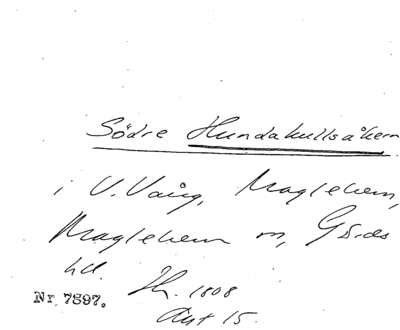 Södre Hundakullsåkern
i V. Vång, Maglehem,
Maglehem sn, Gärds
hd. Th. 1808
Akt 15.
Nr 7897.